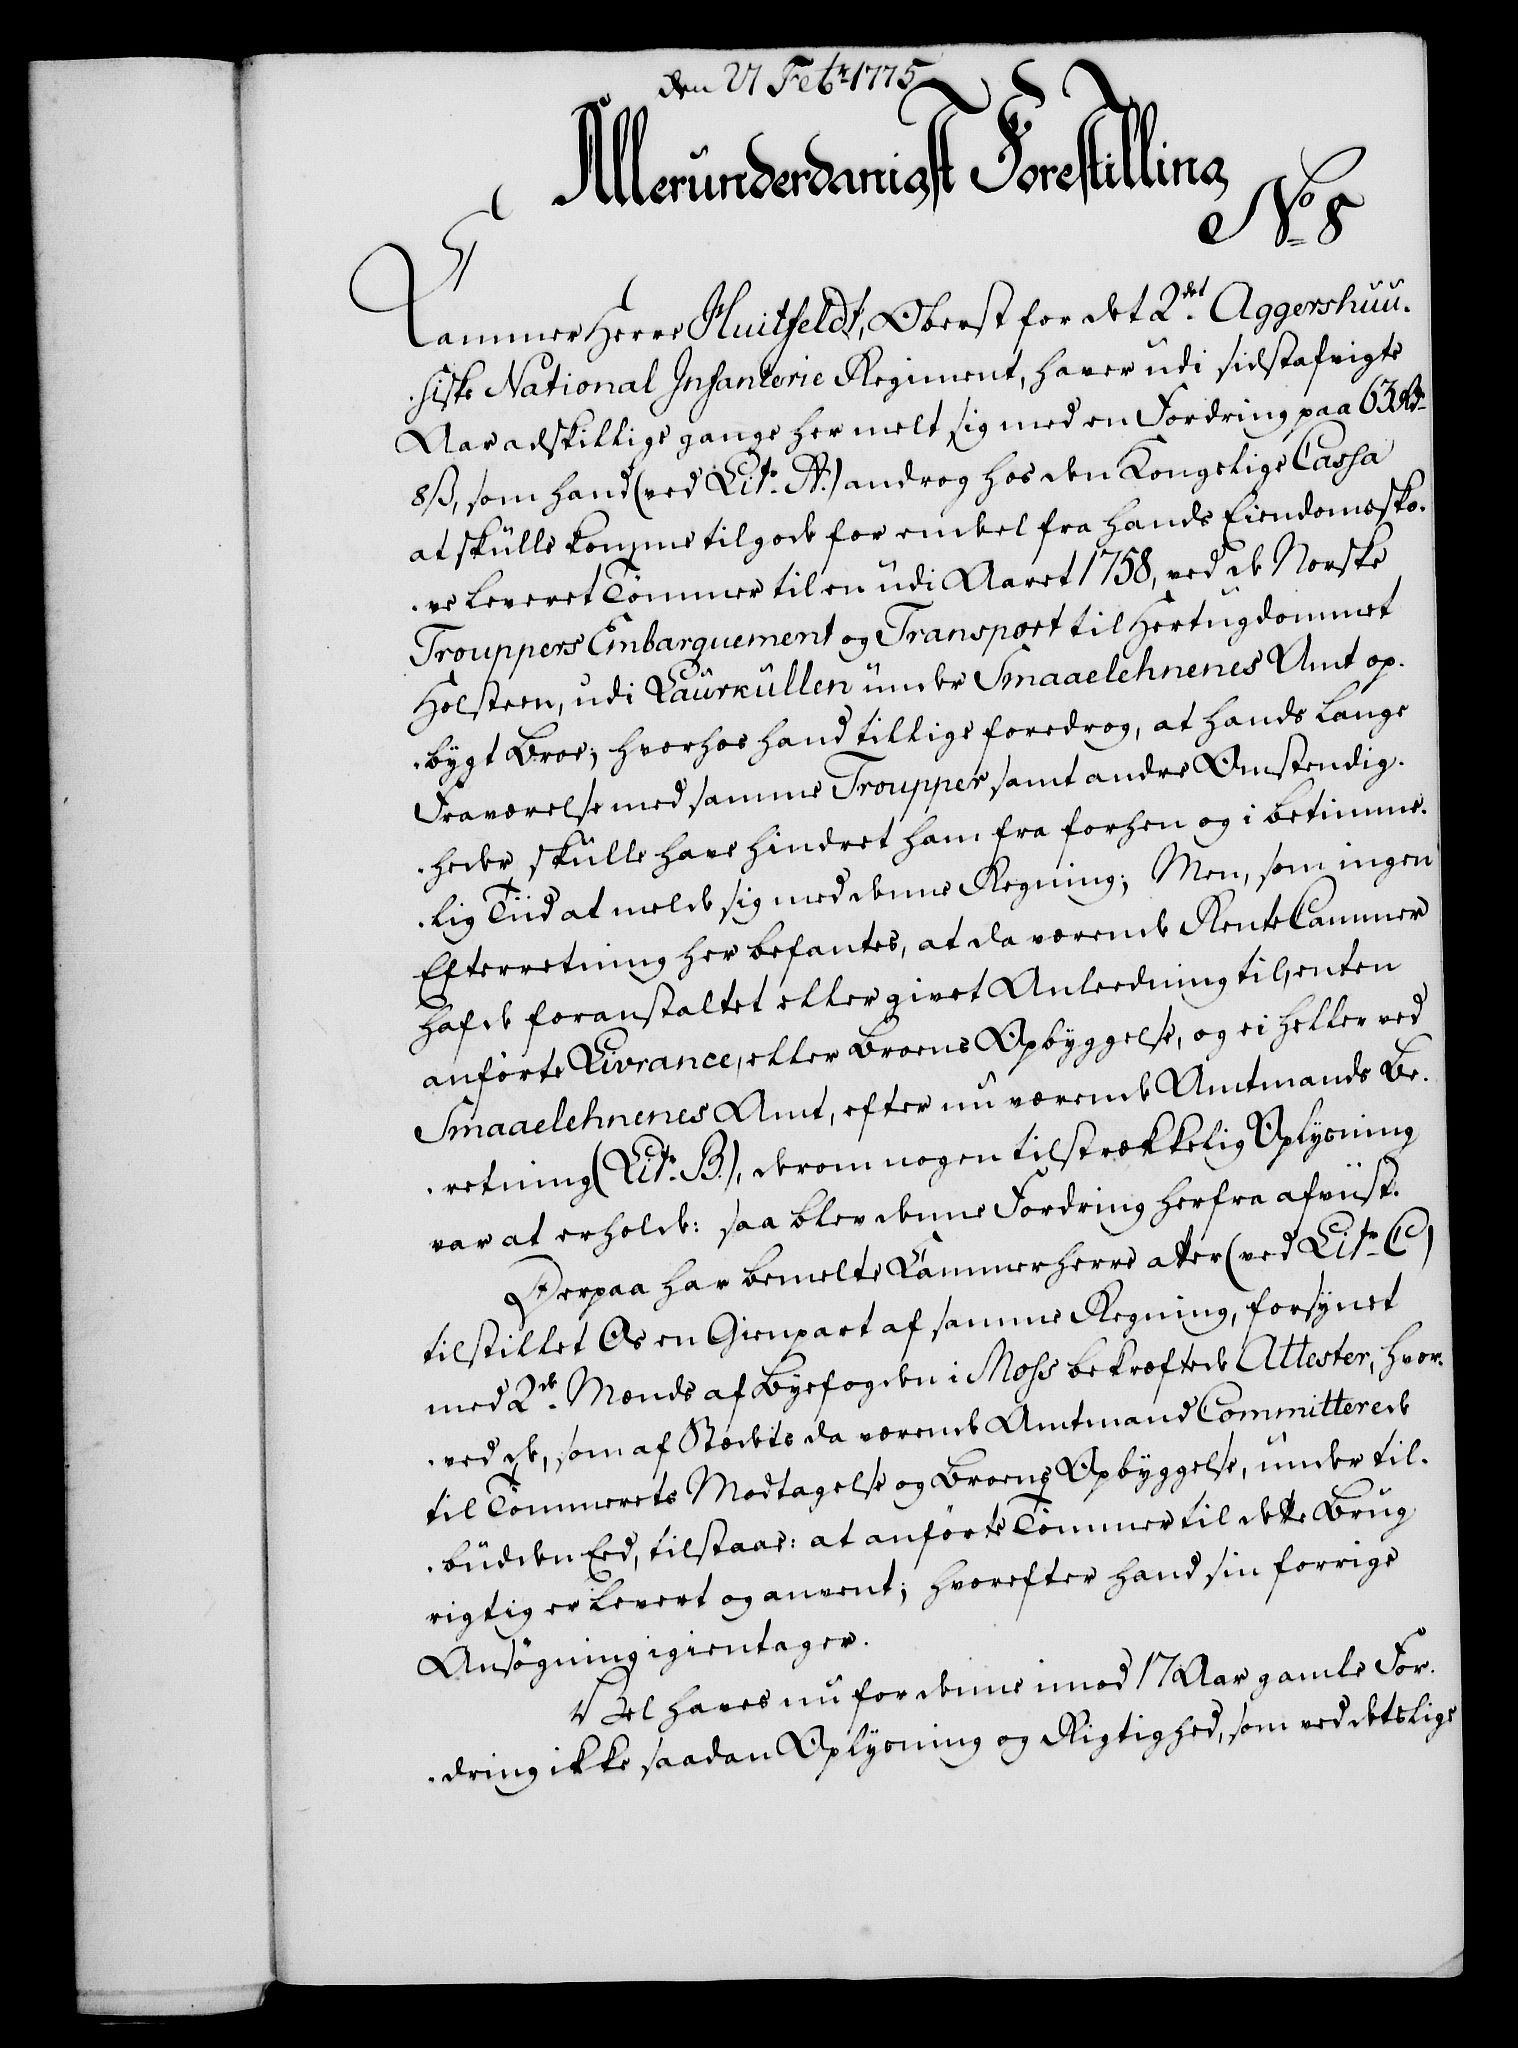 den 27 Febr: 1775
Allerunderdanigst Forestilling
No. 8
Kammer Herre Huitfeldt, Oberst for det 2det Aggershuu-
-siske National Infanterie Regiment, haver udi sidstafvigte
Aar adskillige gange her meldt sig med en Fordring paa 63 Rdr
8 ß, som hand (ved Litr. A.) androg hos den Kongelige Cassa
at skulle komme tilgode for en deel fra hands Eiendomssko-
-ve leveret Tømmer til en udi Aaret 1758, ved de Norske
Trouppers Embarquement og Transport til Hertugdommet
Holsteen, udi Laurkullen under Smaaelehnenes Amt op-
-bygt Broe; hvorhos hand tillige foredrog, at hands lange
Fraværelse med samme Troupper samt andre Omstendig-
-heder skulle have hindret ham fra forhen og i betimme-
-lig Tiid at melde sig med denne Regning; Men, som ingen
Efterretning her befantes, at da værende Rente Cammer
hafde foranstaltet eller givet Anleedning til, enten
anførte Livrance, eller Broens Opbyggelse, og ei heller ved
Smaaelehnenes Amt, efter nu værende Amtmands Be-
-retning (Litr. B.), derom nogen tilstrækkelig Oplysning
var at erholde: saa blev denne Fordring herfra afviist.
Derpaa har bemelte Kammerherre atter (ved Litr. C)
tilstillet Os en Gienpart af samme Regning, forsynet
med 2de Mænds af Byefogden i Moss bekræftede Attester, hvor-
-ved de, som af Stædets da værende Amtmand Committerede
til Tømmerets Modtagelse og Broens Opbyggelse, under til-
-budden Eed, tilstaae: at anførte Tømmer til dette Brug
rigtig er levert og anvent; hvorefter hand sin forrige
Ansøgning igientager.
Vel haves nu for denne imod 17 Aar gamle For-
-dring ikke saadan Oplysning og Rigtighed, som ved detslige